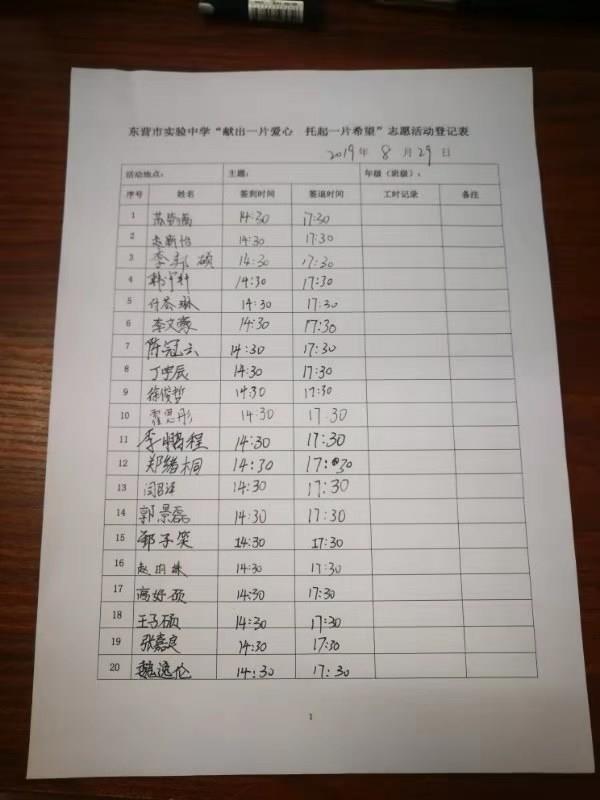 东营市实验中学“献出一片爱心 托起一片希望”志愿活动登记表
2019年 8 月 29 日
活动地点： 主题： 年级（班级）：
序号 姓名 签到时间 签退时间 工时记录 备注
1 14:30 17:30
2 14:30 17:30
3 李 硕 14:30 17:30
4 韩宇轩 14:30 17:30
5 付春琳 14:30 17:30
6 李文豪 14:30 17:30
7 陈冠云 14:30 17:30
8 丁宇辰 14:30 17:30
9 徐俊哲 14:30 17:30
10 霍思彤 14:30 17:30
11 李鹏程 14:30 17:30
12 郑绪桐 14:30 17:30
13 14:30 17:30
14 郭景磊 14:30 17:30
15 郭子笑 14:30 17:30
16 赵 姝 14:30 17:30
17 高妤硕 14:30 17:30
18 王子硕 14:30 17:30
19 张嘉良 14:30 17:30
20 魏逸伦 14:30 17:30
1